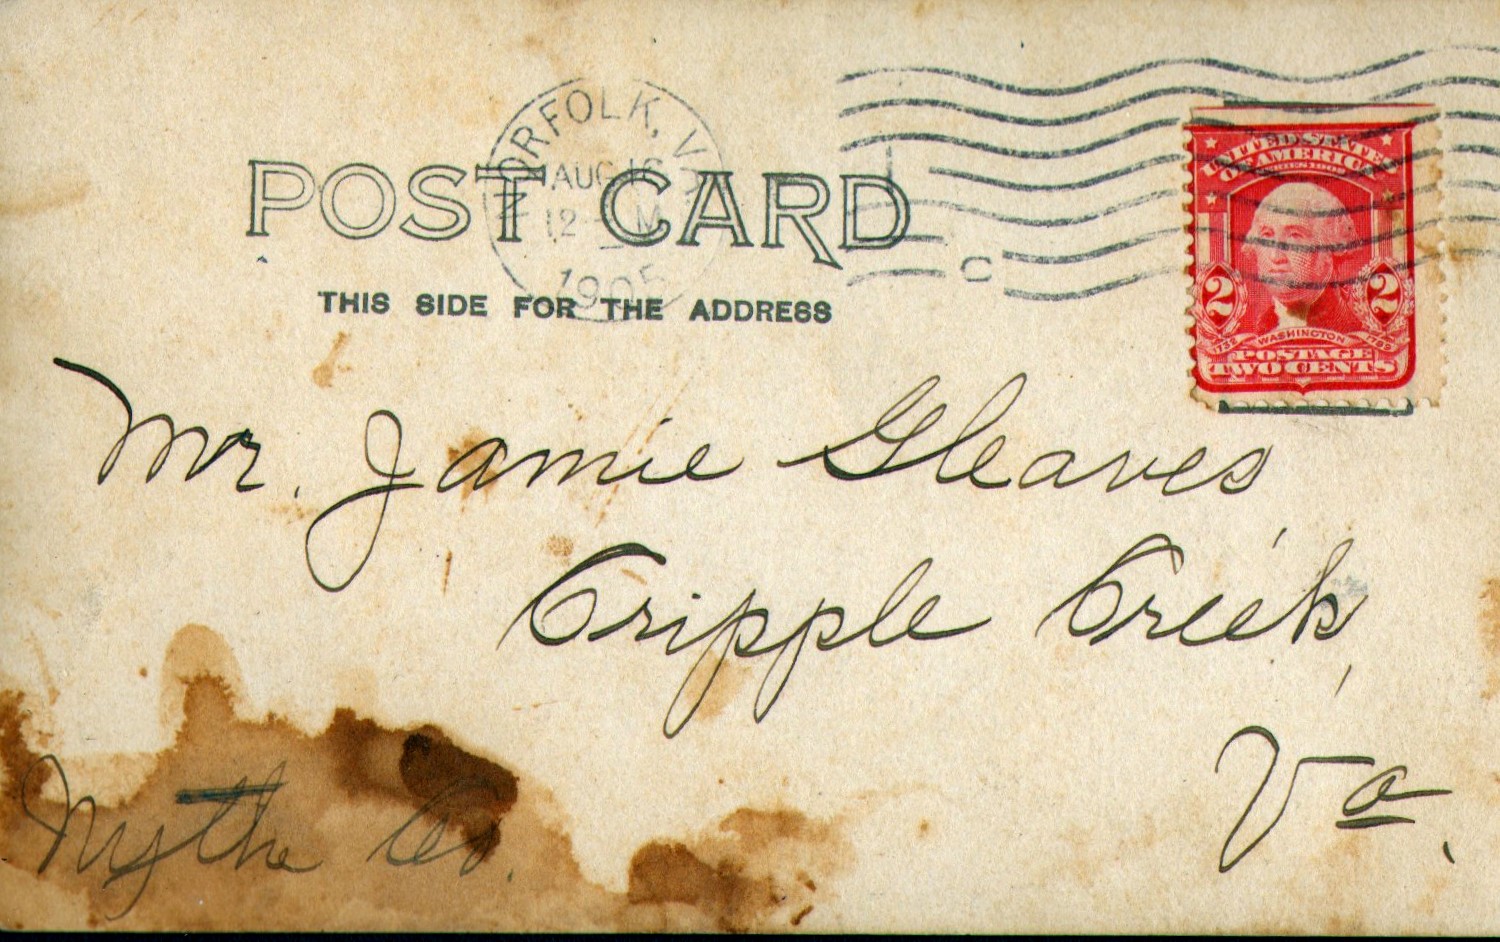 NORFOLK, VA
AUG 16
12 - M
1905
C
POST CARD
THIS SIDE FOR THE ADDRESS
UNITED STATES
OF AMERICA
SERIES 1902
2 2
1732 WASHINGTON 1799
POSTAGE
TWO CENTS
Mr. Jamie Gleaves,
Cripple Creek,
Va.
Wythe Co.